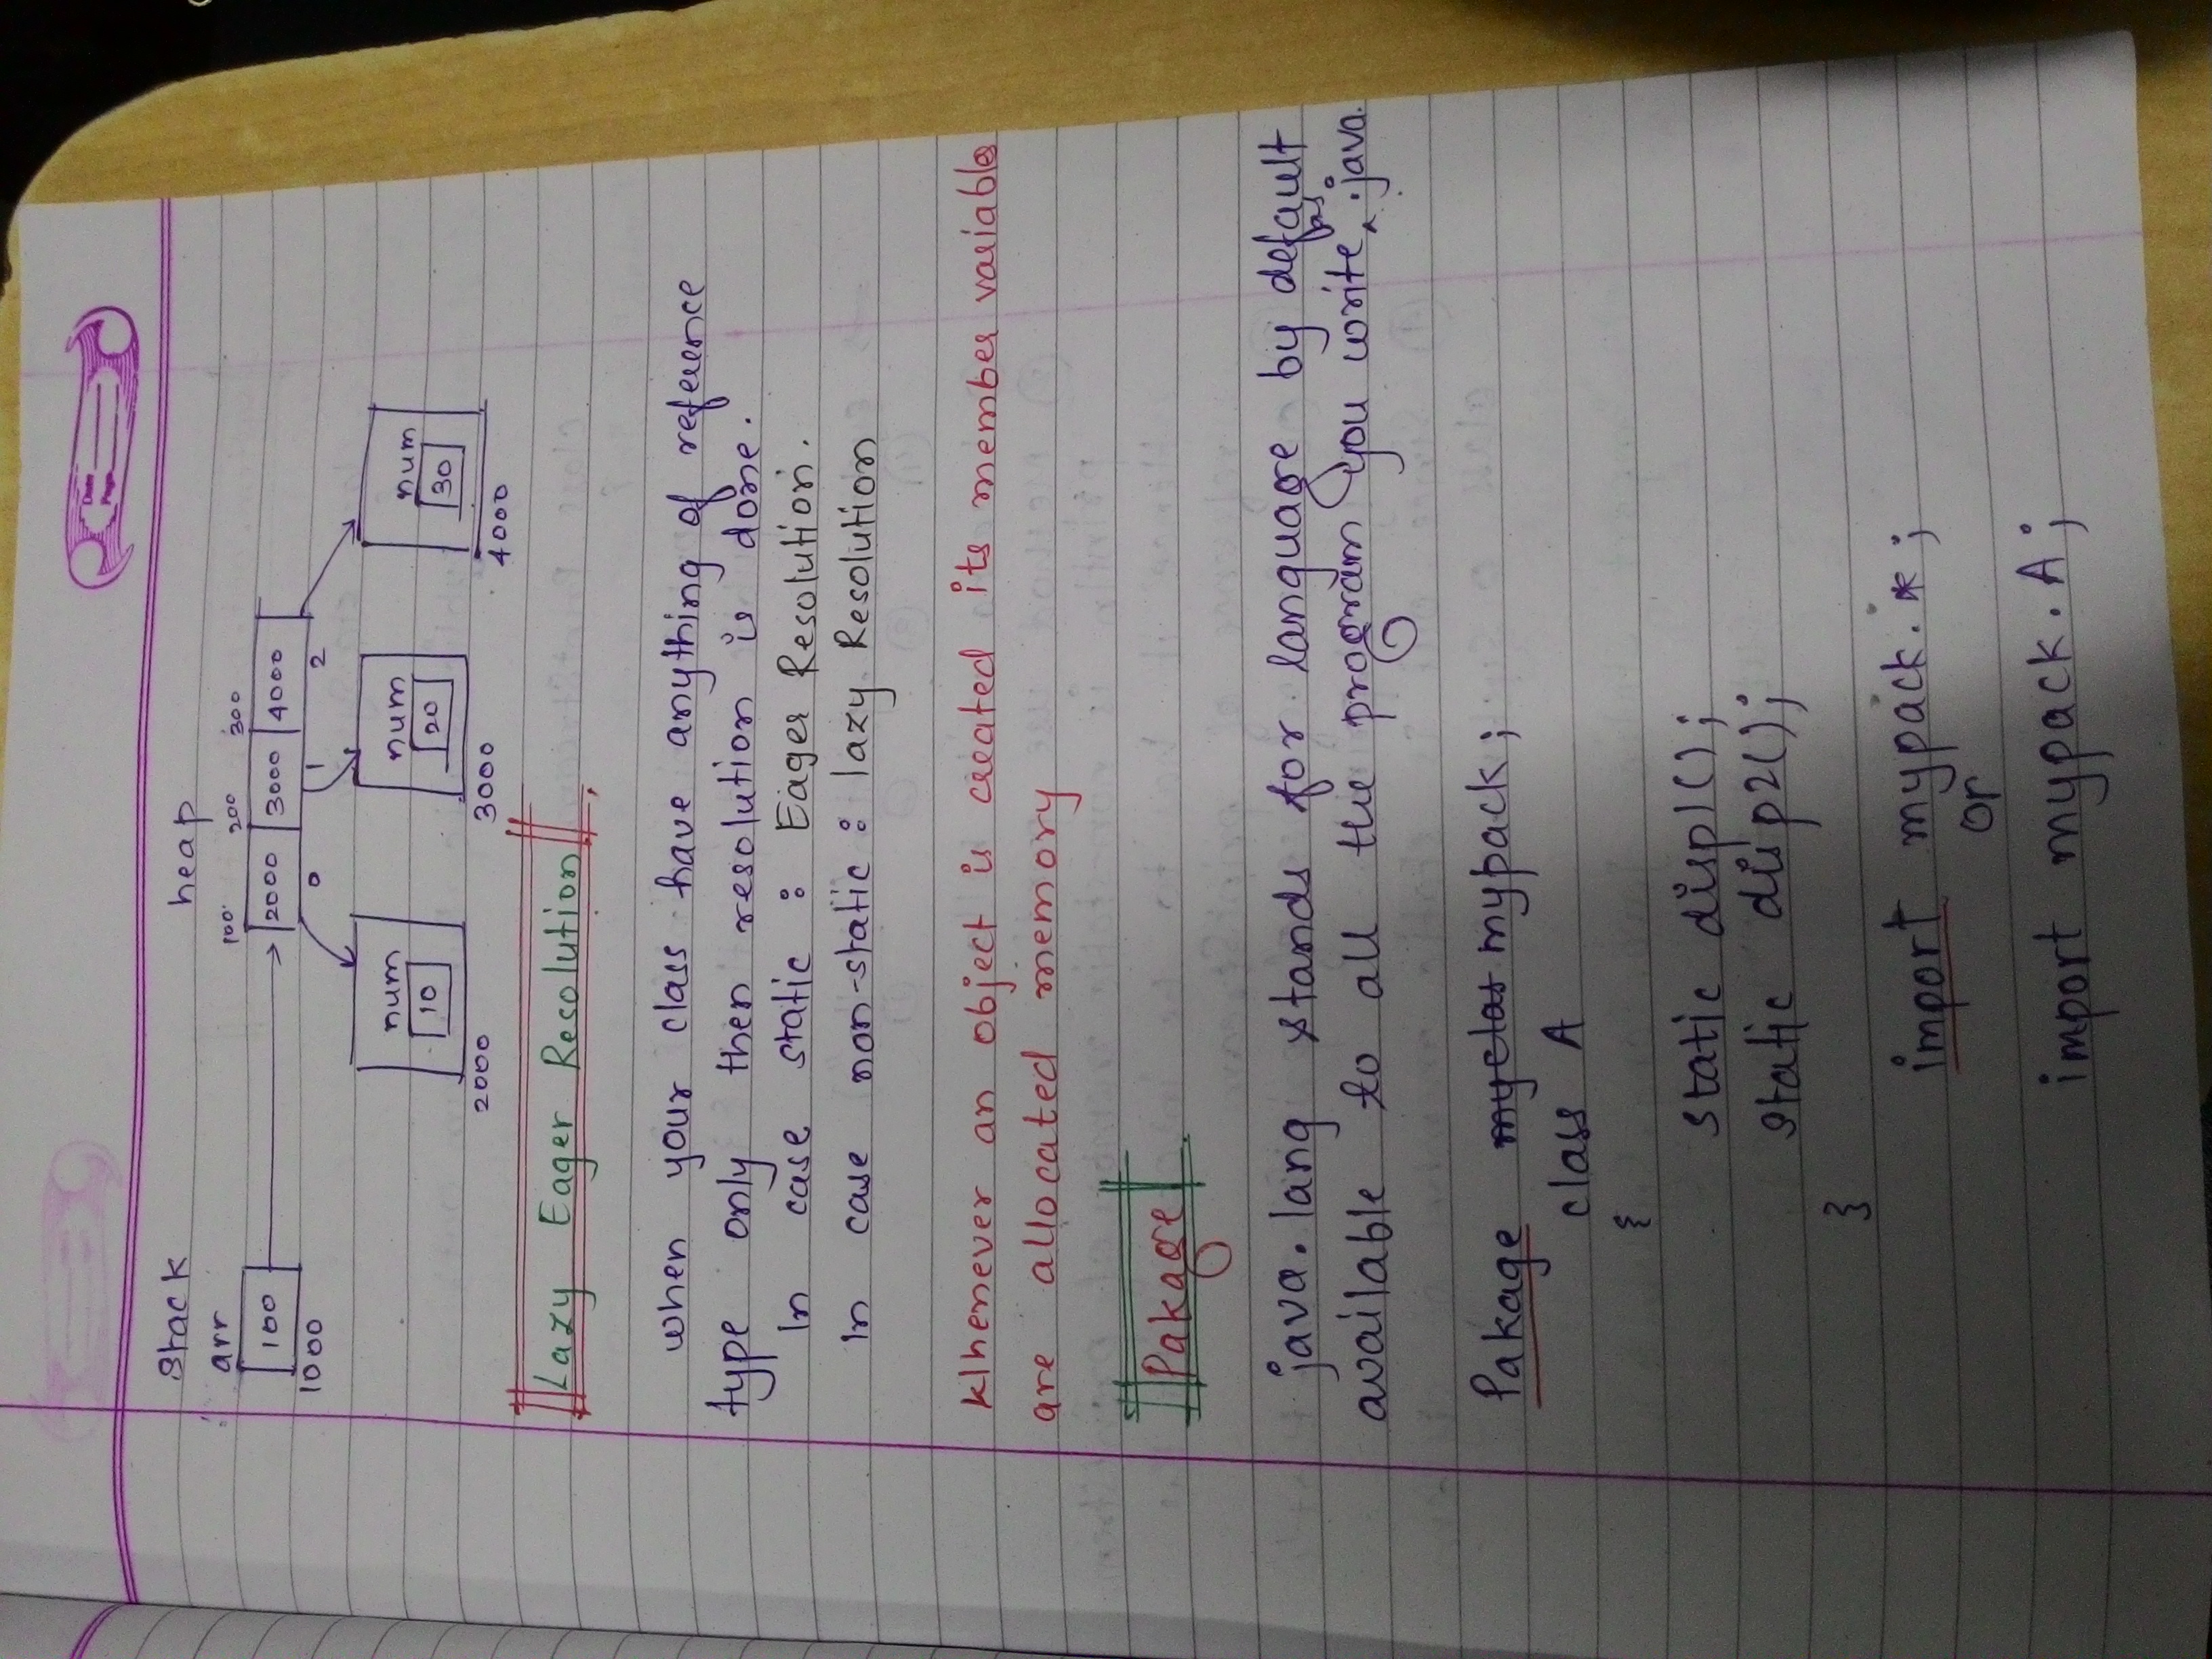 Date
Page
stack heap
arr
100 200 300
100 2000 3000 4000
1000 0 1 2
num num num
10 20 30
2000 3000 4000
Lazy Eager Resolution
when your class have anything of reference
type only then resolution is done.
In case static : Eager Resolution.
In case non-static : lazy Resolution
Whenever an object is created its member variables
are allocated memory
Pakage
java.lang stands for language by default
available to all the program you write as .java.
Pakage myclas mypack;
class A
{
static disp1();
static disp2();
}
import mypack.*;
or
import mypack.A;